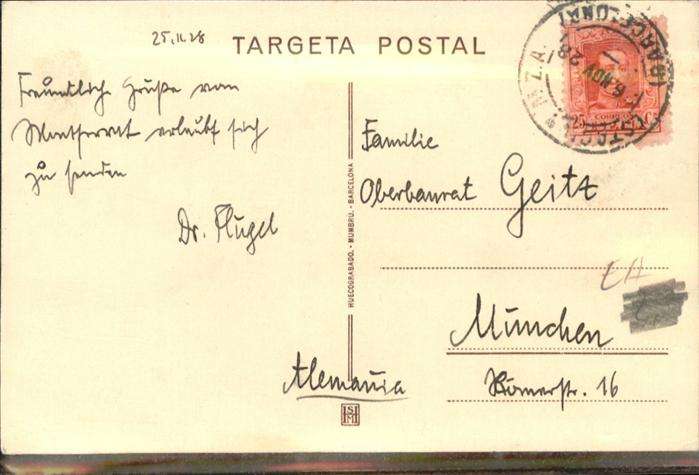 25.11.28
TARGETA POSTAL
Freundliche Grüße vom
Montserrat erlaubt sich
zu senden
Dr. Flügel
HUECOGRABADO. - MUMBRÚ. - BARCELONA
Familie
Oberbaurat Geitz
München
Römerstr. 16
Alemania
CORREOS
25
M.Z.A.
NOV
28
(BARCELONA)